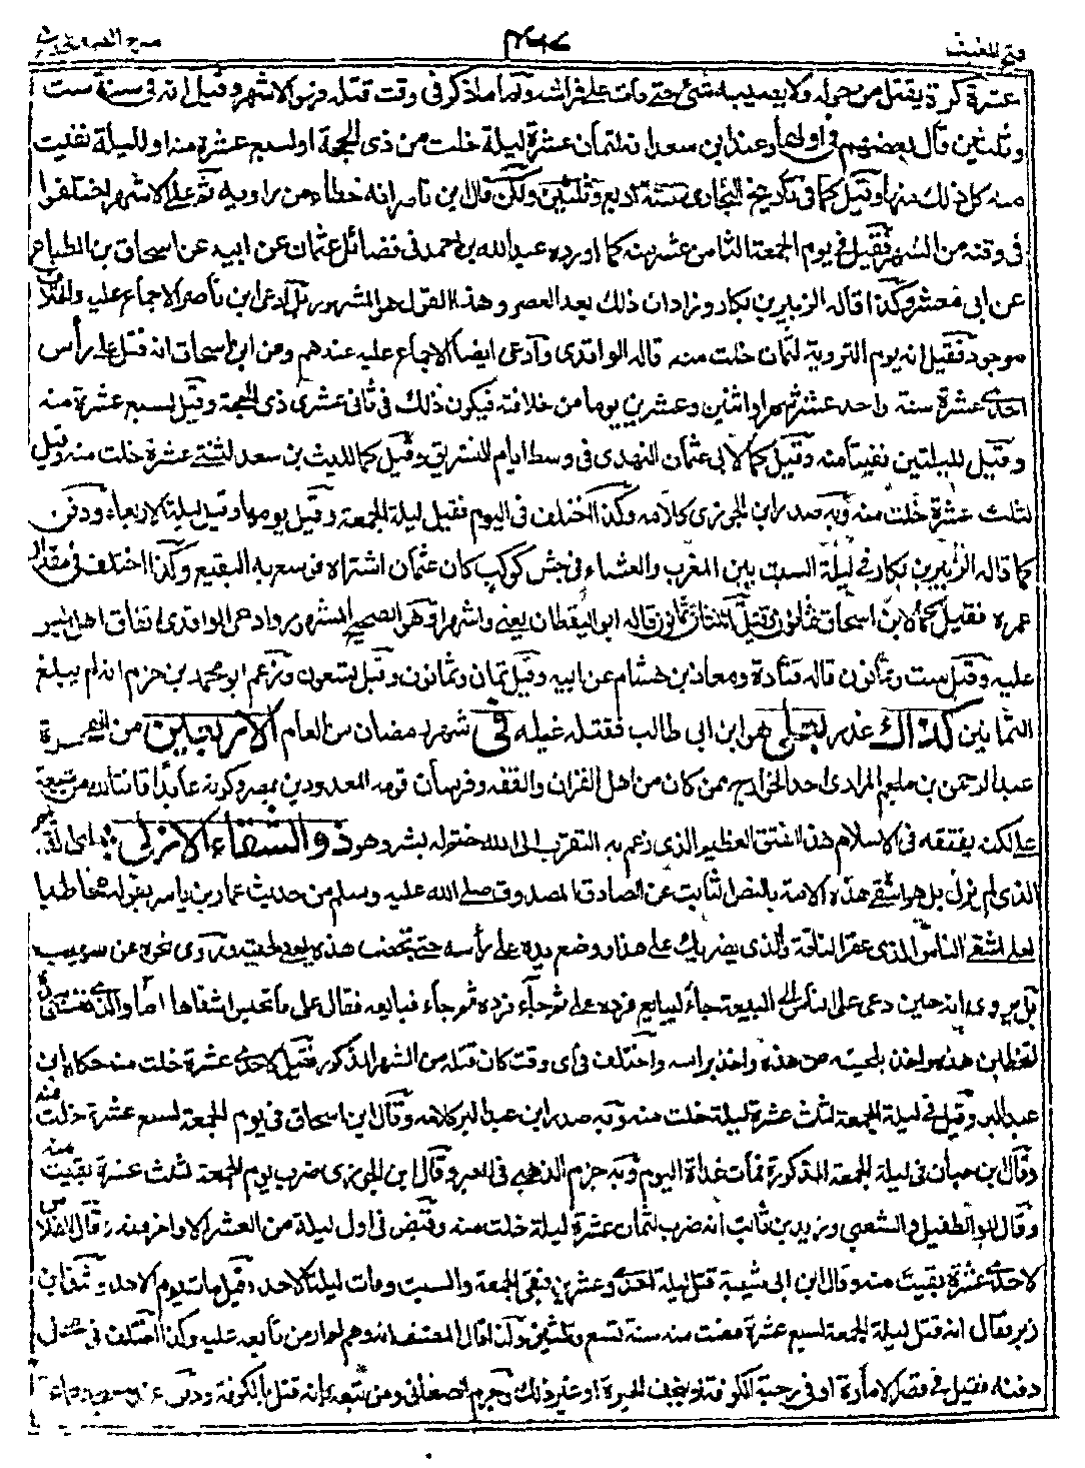 فتح المغيث
عشرة كرة يقتل من حوله ولا يصيبه شئ حتى مات على فراشه وثم ما ذكر فى وقت قتله هو الاشهر وقيل انه فى سنة ست
وثلثين قال بعضهم فى اولها وعند ابن سعد انه لثمان عشرة ليلة خلت من ذى الحجة او لسبع عشرة منه او لليلة بقيت
منه كل ذلك منها وقيل كما فى تاريخ البخارى سنة اربع وثلثين ولكن قال ابن ناصر انه خطاء من راويه ثم على الاشهر اختلفوا
فى وقته من الشهر فقيل فى يوم الجمعة الثامن عشر منه كما اورده عبدالله بن احمد فى فضائل عثمان عن ابيه عن اسحاق بن الطباع
عن ابى معشر وكذا قاله الزبير بن بكار وزاد ان ذلك بعد العصر وهذا القول هو المشهور بل ادعى ابن ناصر الاجماع عليه والخلاف
موجود فقيل انه يوم التروية لثمان خلت منه قاله الواقدى وادعى ايضا الاجماع عليه عندهم وعن ابن اسحاق انه قتل على رأس
احدى عشرة سنة واحد عشر شهرا واثنين وعشرين يوما من خلافته فيكون ذلك فى ثانى عشرى ذى الحجة وقيل لسبع عشرة منه
وقيل لليلتين بقيتا منه وقيل كما لابى عثمان النهدى فى وسط ايام التشريق وقيل كما لليث بن سعد لثنتى عشرة خلت منه وقيل
لثلث عشرة خلت منه وبه صدر ابن الجوزى كلامه وكذا اختلف فى اليوم فقيل ليلة الجمعة وقيل يومها وقيل ليلة الاربعاء ودفن
كما قاله الزبير بن بكار فى ليلة السبت بين المغرب والعشاء فى حش كوكب كان عثمان اشتراه فوسع به البقيع وكذا اختلف فى مقدار
عمره فقيل كما لابن اسحاق ثمانون وقيل اثنتان وثمانون قاله ابو اليقظان يعنى واشهرا وهو الصحيح المشهور وادعى الواقدى اتفاق اهل السير
عليه وقيل ست وثمانون قاله قتادة ومعاذ بن هشام عن ابيه وقيل ثمان وثمانون وقيل تسعون وزعم ابو محمد بن حزم انه لم يبلغ
الثمانين كذاك غدر بعلى هو ابن ابى طالب فقتله غيلة فى شهر رمضان من العام الاربعين من الهجرة
عبدالرحمن بن ملجم المرادى احد الخوارج ممن كان من اهل القران والفقه وفرسان قومه المعدودين بمصر وكونه عابدا قانتا
لكنه يفتقه فى الاسلام هذا الفتق العظيم الذى زعم به التقرب الى الله ختم له بشر وهو ذو الشقاء الازلى
الذى لم يزل بل هو اشقى هذه الامة بالنص الثابت عن الصادق المصدوق صلى الله عليه وسلم من حديث عمار بن ياسر بقوله مخاطبا
لعلى اشقى الناس الذى عقر الناقة والذى يضربك على هذا ووضع يده على رأسه حتى تخضب هذه يعنى لحيته وروى نحوه عن
بل يروى انه حين دعى على الناس الى البيعة جاء ليبايع فرده على ثم جاء فرده ثم جاء فبايعه فقال على ما تحبس اشقاها اما والذى نفسى بيده
لتخضبن هذه واخذ بلحيته من هذه واخذ براسه واختلف فى اى وقت كان قتله من الشهر المذكور فقيل لاحدى عشرة خلت منه حكاه ابن
عبدالبر وقيل فى ليلة الجمعة لثلث عشرة ليلة خلت منه وبه صدر ابن عبدالبر كلامه وقال ابن اسحاق فى يوم الجمعة لسبع عشرة خلت منه
وقال ابن حبان فى ليلة الجمعة المذكورة فمات غداة اليوم وبه جزم الذهبى فى العبر وقال ابن الجوزى ضرب يوم الجمعة لثلث عشرة بقيت منه
وقال ابو الطفيل والشعبى وزيد بن ثالبت انه ضرب لثمان عشرة ليلة خلت منه وقبض فى اول ليلة من العشر الاواخر منه وقال الفلاس
لاحدى عشرة بقيت منه وقال ابن ابى شيبة قتل ليلة احدى وعشرين فبقى الجمعة والسبت ومات ليلة الاحد وقيل مات يوم الاحد وشذ ابن
زبر فقال انه قتل ليلة الجمعة لسبع عشرة مضت منه سنة تسع وثلثين ولذا قال المصنف انه وهم لم ار من تابعه عليه وكذا اختلف فى محل
دفنه فقيل فى قصر الامارة او فى رحبة الكوفة او بنجف الحيرة او غير ذلك وجزم الصغانى ومن تبعه بانه قتل بالكوفة ودفن